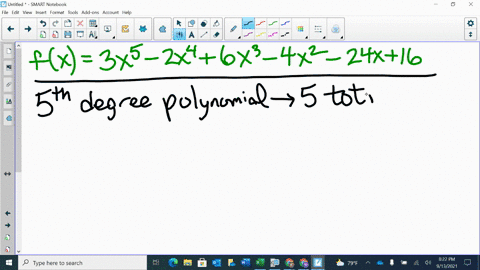 Untitled * - SMART Notebook
File Edit View Insert Format Tools Add-ons Account Help
f(x) = 3x⁵ − 2x⁴ + 6x³ − 4x² − 24x + 16
5th degree polynomial → 5 tot
Type here to search
79°F
8:22 PM
9/13/2021